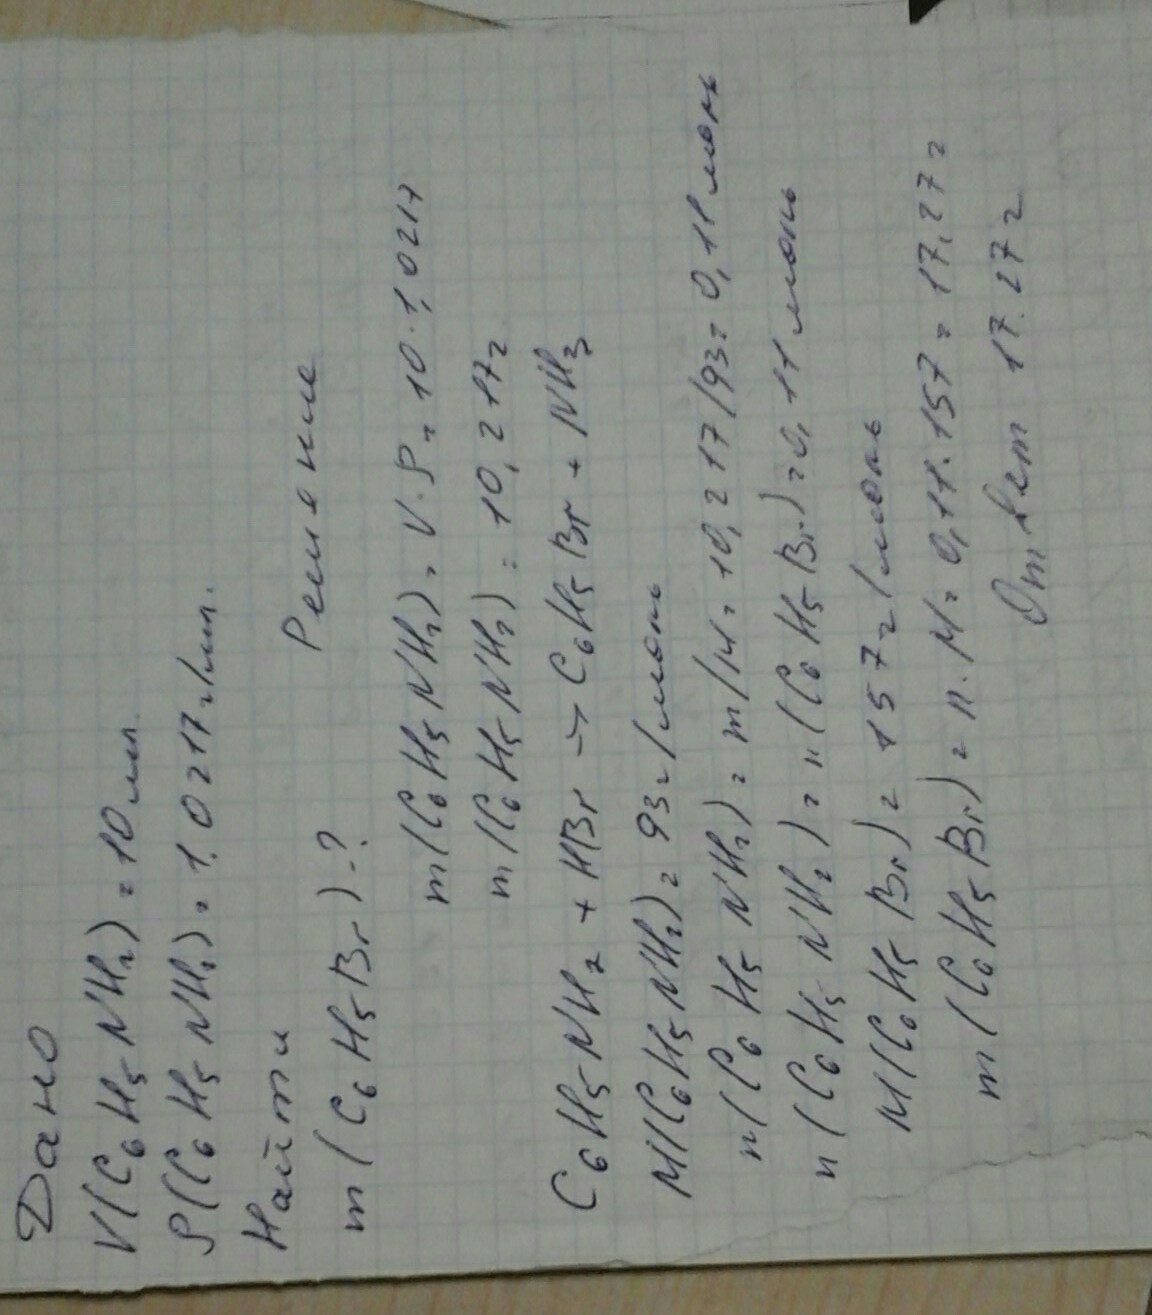 Дано
V(C6H5NH2) = 10 мл.
ρ(C6H5NH2) = 1.0217 г/мл.
Найти
m(C6H5Br)-?
Решение
m(C6H5NH2) = V·ρ = 10·1,0217
m(C6H5NH2) = 10,217г
C6H5NH2 + HBr → C6H5Br + NH3
M(C6H5NH2) = 93г/моль
n(C6H5NH2) = m/M = 10,217/93 = 0,11 моль
n(C6H5NH2) = n(C6H5Br) = 0,11 моль
M(C6H5Br) = 157г/моль
m(C6H5Br) = n·M = 0,11·157 = 17,27г
Ответ 17.27г